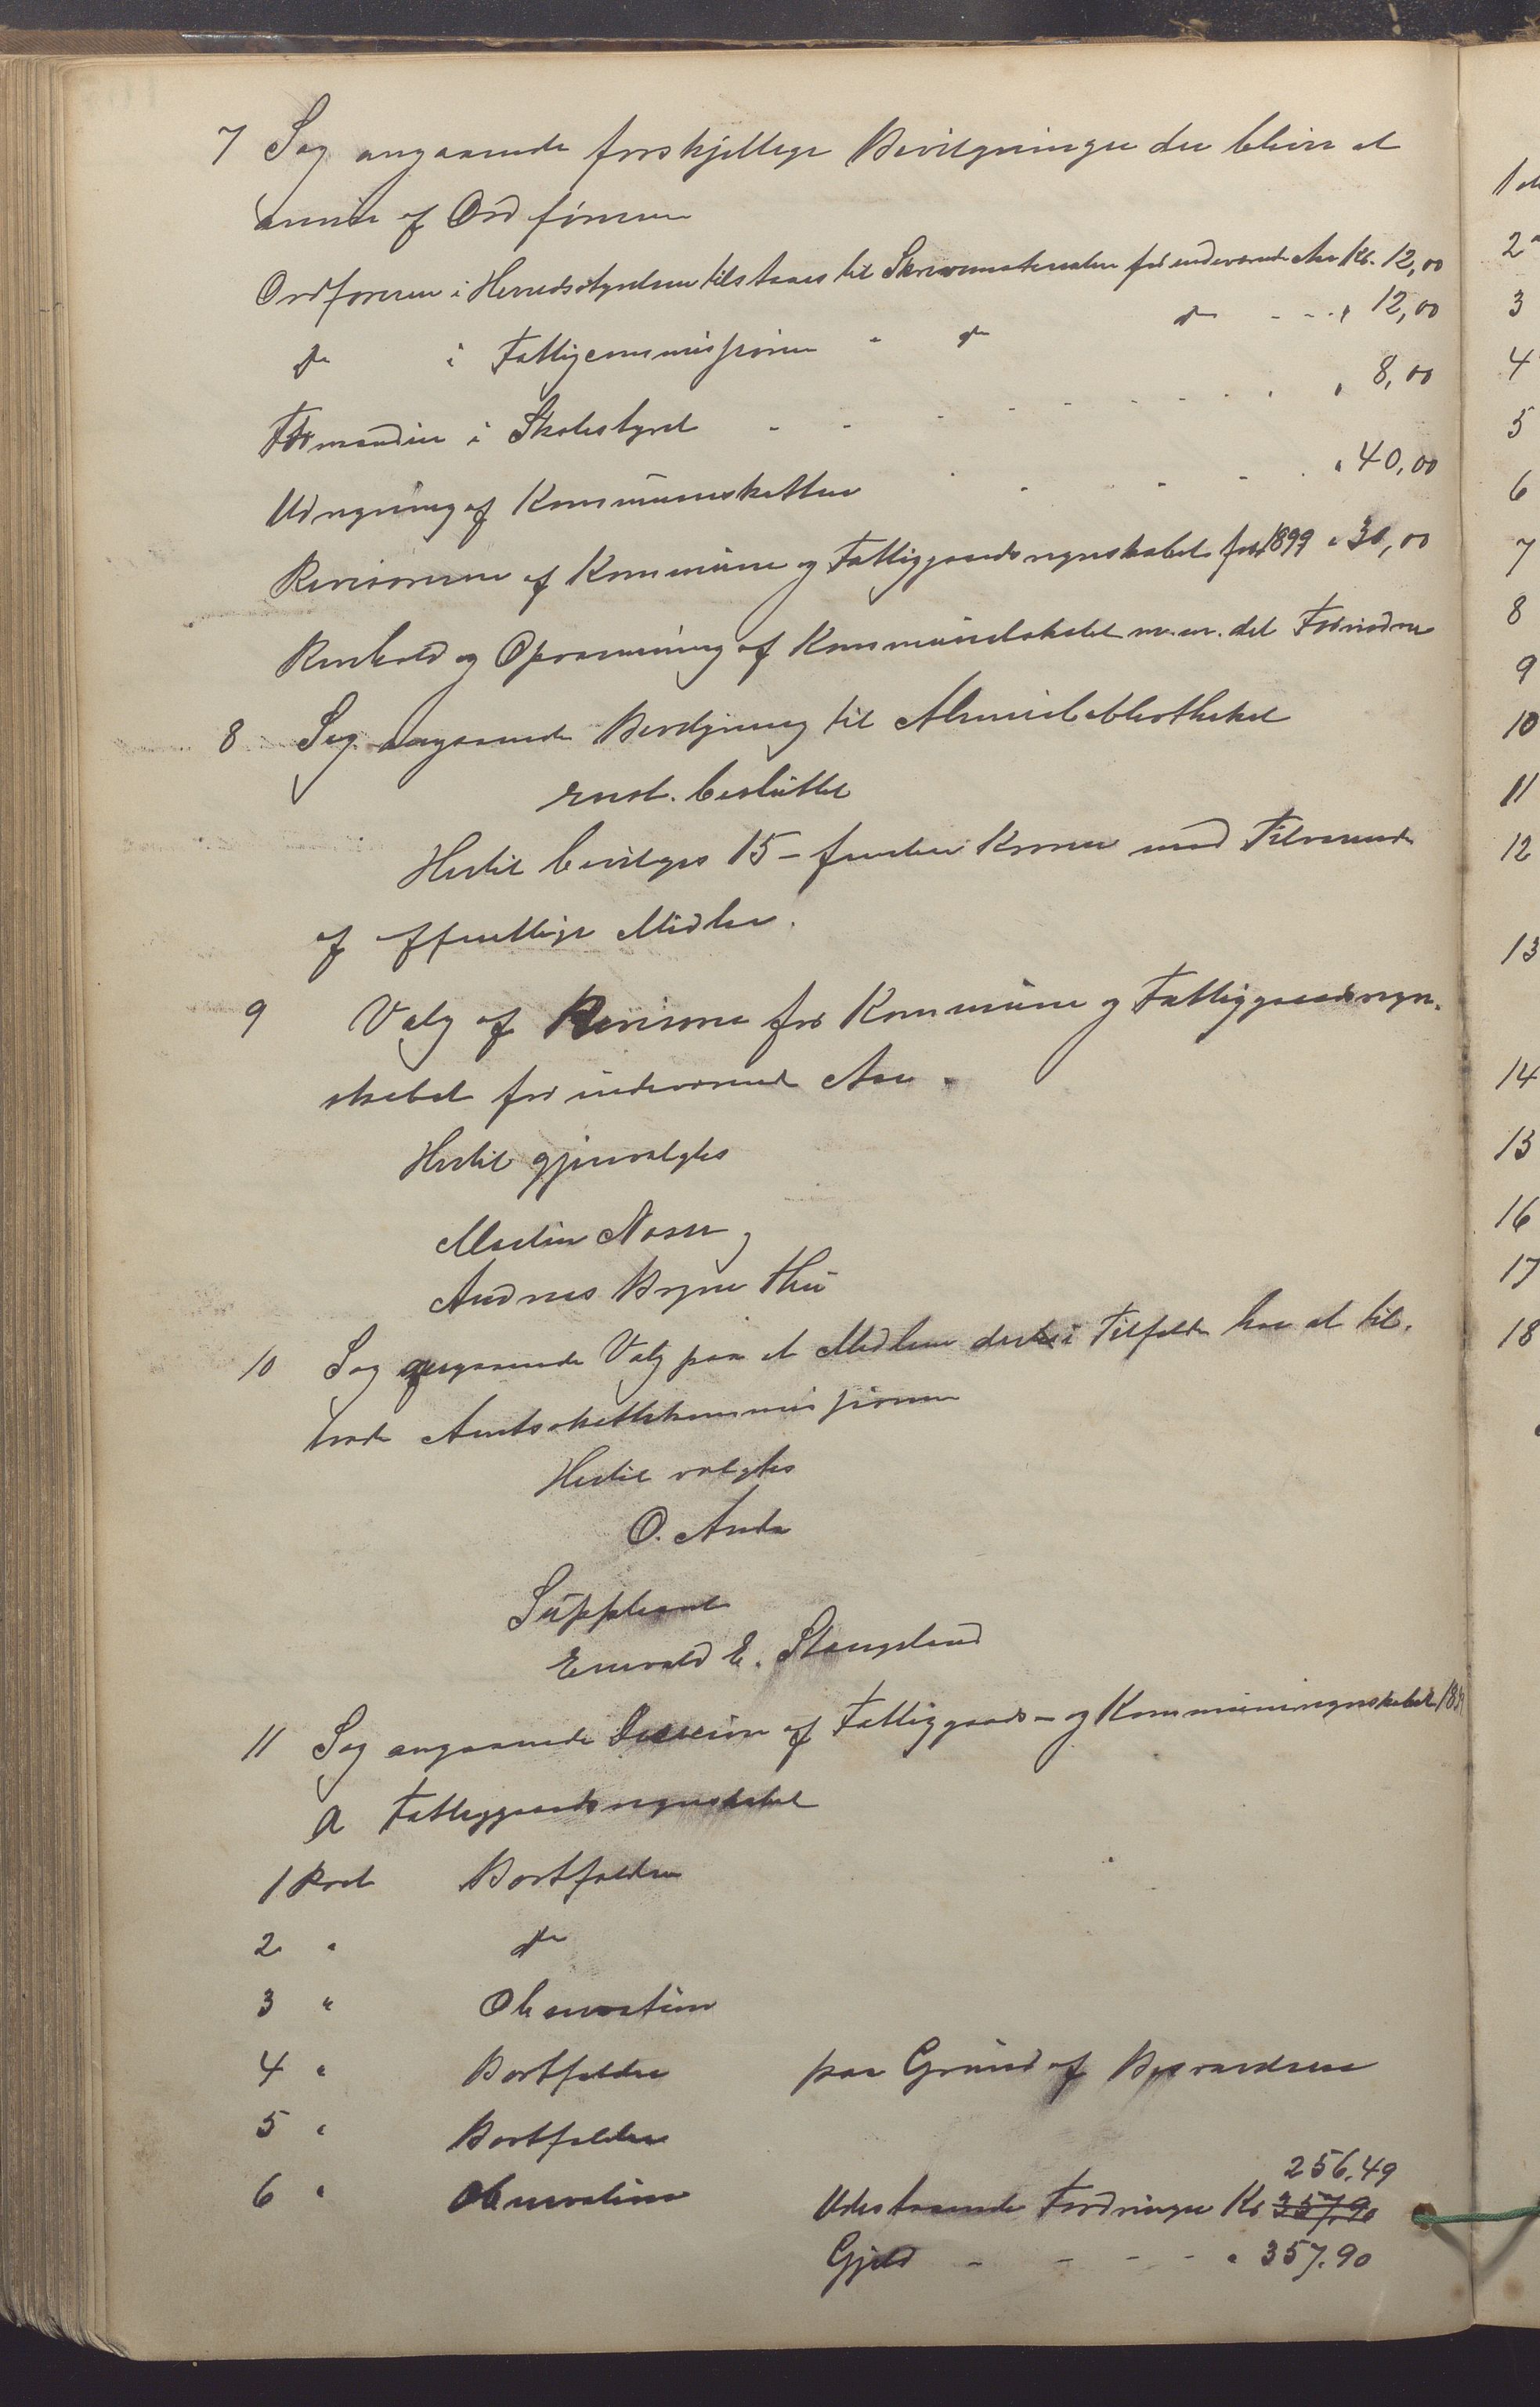 7 Sag angaaende forskjellige Bevilgninger der bliver at
anvise af Ordføreren
Ordføreren i Herredsstyrelsen tilstaaes til Skrivematerialier for indeværende Aar Kr. 12,00
do i Fattigcommissionen " do do - - - " 12,00
Formanden i Skolestyret - - - - - - - - " 8,00
Udregning af Kommuneskatten - - - - - " 40,00
Revisorerne af Kommune og Fattiggaardsregnskabet for 1899 " 30,00
Renhold og Opvarmning af Kommunelokalet m.m. det Fornødne
8 Sag angaaende Bevilgning til Almuebibliotheket
enst. besluttet
Hertil bevilges 15 – femten Kroner mod Tilsvarende
af offentlige Midler.
9 Valg af Revisorer for Kommune og Fattiggaardsregn-
skabet for indeværende Aar.
Hertil gjenvalgtes
Martin Næsse og
Andreas Bryne Thu
10 Sag angaaende Valg paa et Medlem der i Tilfælde har at til-
træde Amtsskattekommissionen
Hertil valgtes
O. Anda
Suppleant
Enevald E. Stangeland
11 Sag angaaende Decision af Fattiggaards- og Kommuneregnskabet 189
a Fattiggaardsregnskabet
1 Post Bortfalder
2 " do
3 " Observation
4 " Bortfalder paa Grund af Besvarelsen
5 " Bortfalder
256.49
6 " Observation Udestaaende Fordringer Kr 357.90
Gjæld - - - - " 357.90
1
2
3
4
5
6
7
8
9
10
11
12
13
14
15
16
17
18